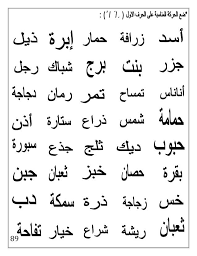 *ضع الحركة المناسبة على الحرف الأول ( َ ِ ُ ) :
أسد زرافة حمار إبرة ذيل
جزر بنت برج شباك رجل
أناناس تمساح تمر رمان دجاجة
حمامة شمس ذراع ستارة أذن
حبوب ديك ثلج جذع سبورة
بقرة حصان خبز ثعبان جبن
خس زجاجة ذرة سمكة دب
ثعبان ريشة شراع خيار تفاحة
89